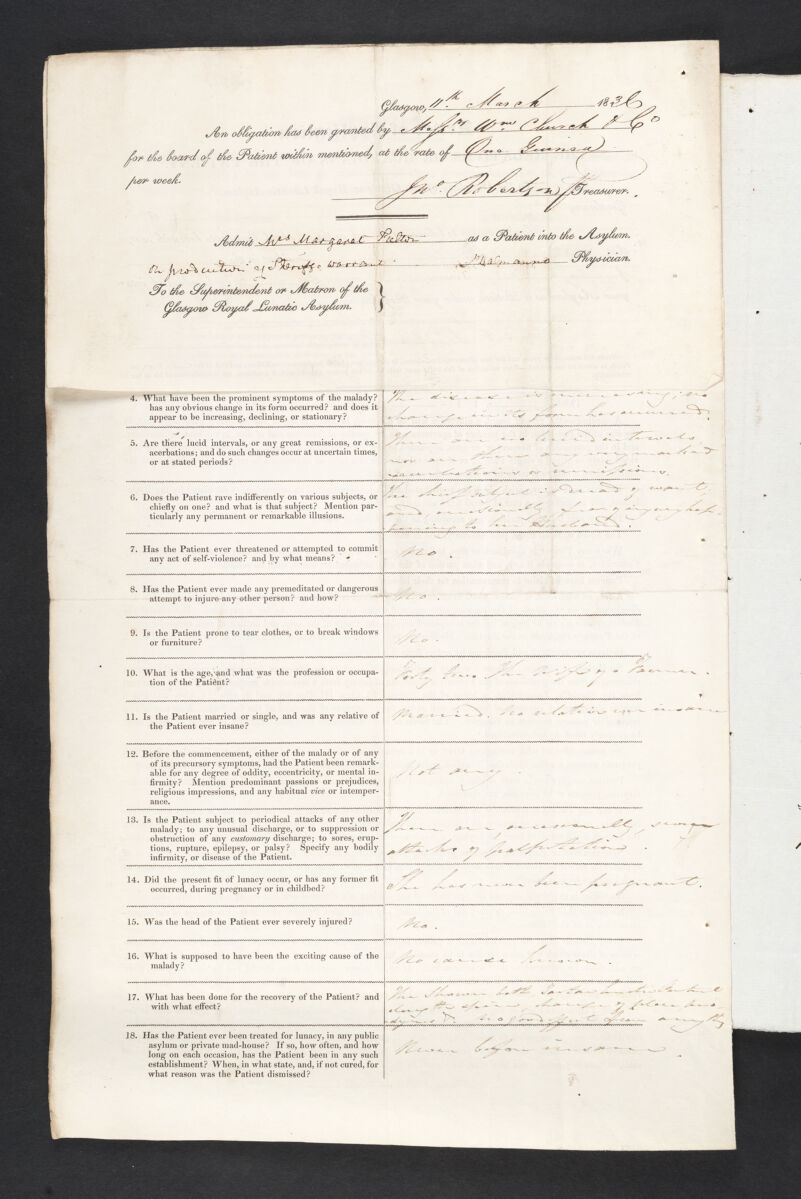 Glasgow, 11th March 1836
An obligation has been granted by Messrs Wm Church & Co
for the board of the Patient within mentioned, at the rate of One Guinea
per week.
Jno Robertson Treasurer.
Admit Mrs Margaret as a Patient into the Asylum.
on production of Sheriff's warrant. Physician.
To the Superintendent or Matron of the
Glasgow Royal Lunatic Asylum.
4. What have been the prominent symptoms of the malady?
has any obvious change in its form occurred? and does it
appear to be increasing, declining, or stationary?
The disease is increasing; no
change in its form has occurred.
5. Are there lucid intervals, or any great remissions, or ex-
acerbations; and do such changes occur at uncertain times,
or at stated periods?
There are no lucid intervals,
nor are there any very marked
exacerbations or remissions.
6. Does the Patient rave indifferently on various subjects, or
chiefly on one? and what is that subject? Mention par-
ticularly any permanent or remarkable illusions.
The chief subject is dread of want,
and occasionally of an injury hap-
pening to her Husband.
7. Has the Patient ever threatened or attempted to commit
any act of self-violence? and by what means?
No.
8. Has the Patient ever made any premeditated or dangerous
attempt to injure any other person? and how?
No.
9. Is the Patient prone to tear clothes, or to break windows
or furniture?
No.
10. What is the age, and what was the profession or occupa-
tion of the Patient?
Forty two The Wife of a Farmer.
11. Is the Patient married or single, and was any relative of
the Patient ever insane?
Married. No relative ever insane
12. Before the commencement, either of the malady or of any
of its precursory symptoms, had the Patient been remark-
able for any degree of oddity, eccentricity, or mental in-
firmity? Mention predominant passions or prejudices,
religious impressions, and any habitual vice or intemper-
ance.
Not any.
13. Is the Patient subject to periodical attacks of any other
malady; to any unusual discharge, or to suppression or
obstruction of any customary discharge; to sores, erup-
tions, rupture, epilepsy, or palsy? Specify any bodily
infirmity, or disease of the Patient.
There are, occasionally, severe
attacks of palpitation.
14. Did the present fit of lunacy occur, or has any former fit
occurred, during pregnancy or in childbed?
She has never been pregnant.
15. Was the head of the Patient ever severely injured?
No.
16. What is supposed to have been the exciting cause of the
malady?
No cause known.
17. What has been done for the recovery of the Patient? and
with what effect?
The Shower bath
along the spine, change of place and
No good effect from any thing
18. Has the Patient ever been treated for lunacy, in any public
asylum or private mad-house? If so, how often, and how
long on each occasion, has the Patient been in any such
establishment? When, in what state, and, if not cured, for
what reason was the Patient dismissed?
Never before insane.